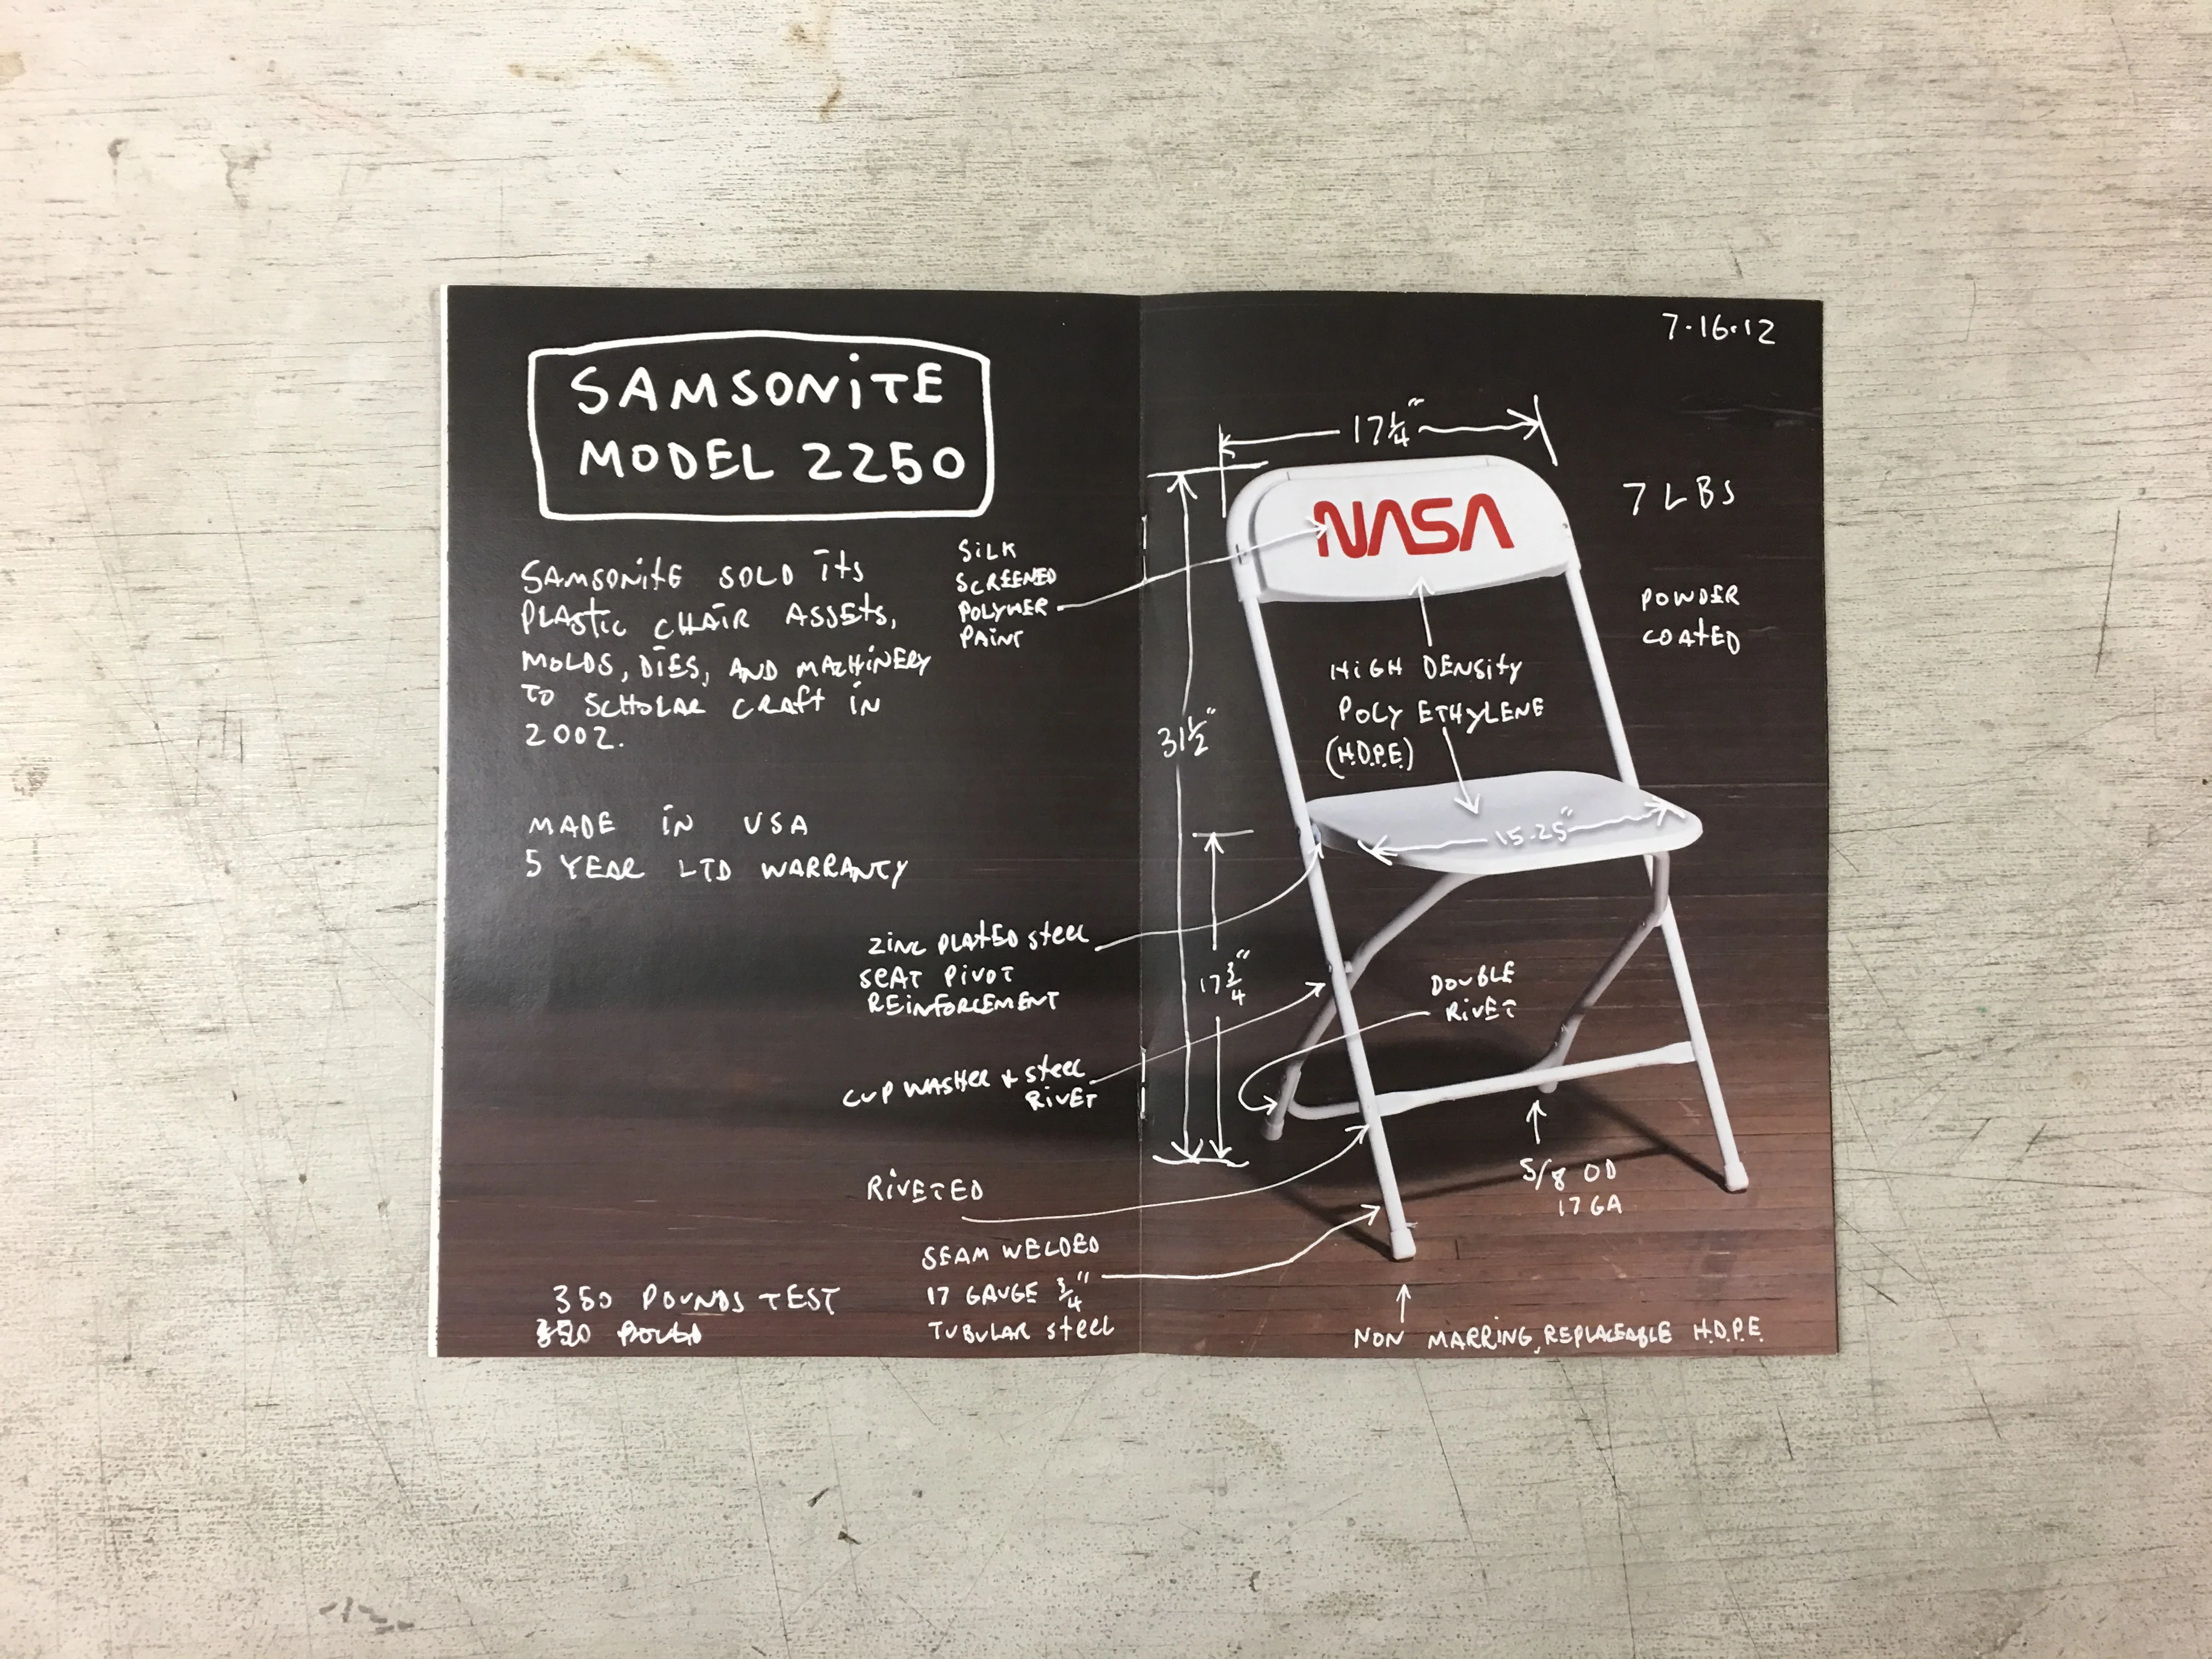 SAMSONITE
MODEL 2250
SAMSONITE SOLD ITS
PLASTIC CHAIR ASSETS,
MOLDS, DIES, AND MACHINERY
TO SCHOLAR CRAFT IN
2002.
MADE IN USA
5 YEAR LTD WARRANTY
SILK
SCREENED
POLYMER
PAINT
ZINC PLATED STEEL
SEAT PIVOT
REINFORCEMENT
CUP WASHER + STEEL
RIVET
RIVETED
SEAM WELDED
17 GAUGE 3/4"
TUBULAR STEEL
350 POUNDS TEST
7-16-12
17 1/4"
NASA
7 LBS
POWDER
COATED
HIGH DENSITY
POLY ETHYLENE
(H.D.P.E.)
31 1/2"
15.25"
17 3/4"
DOUBLE
RIVET
5/8 OD
17 GA
NON MARRING, REPLACEABLE H.D.P.E.